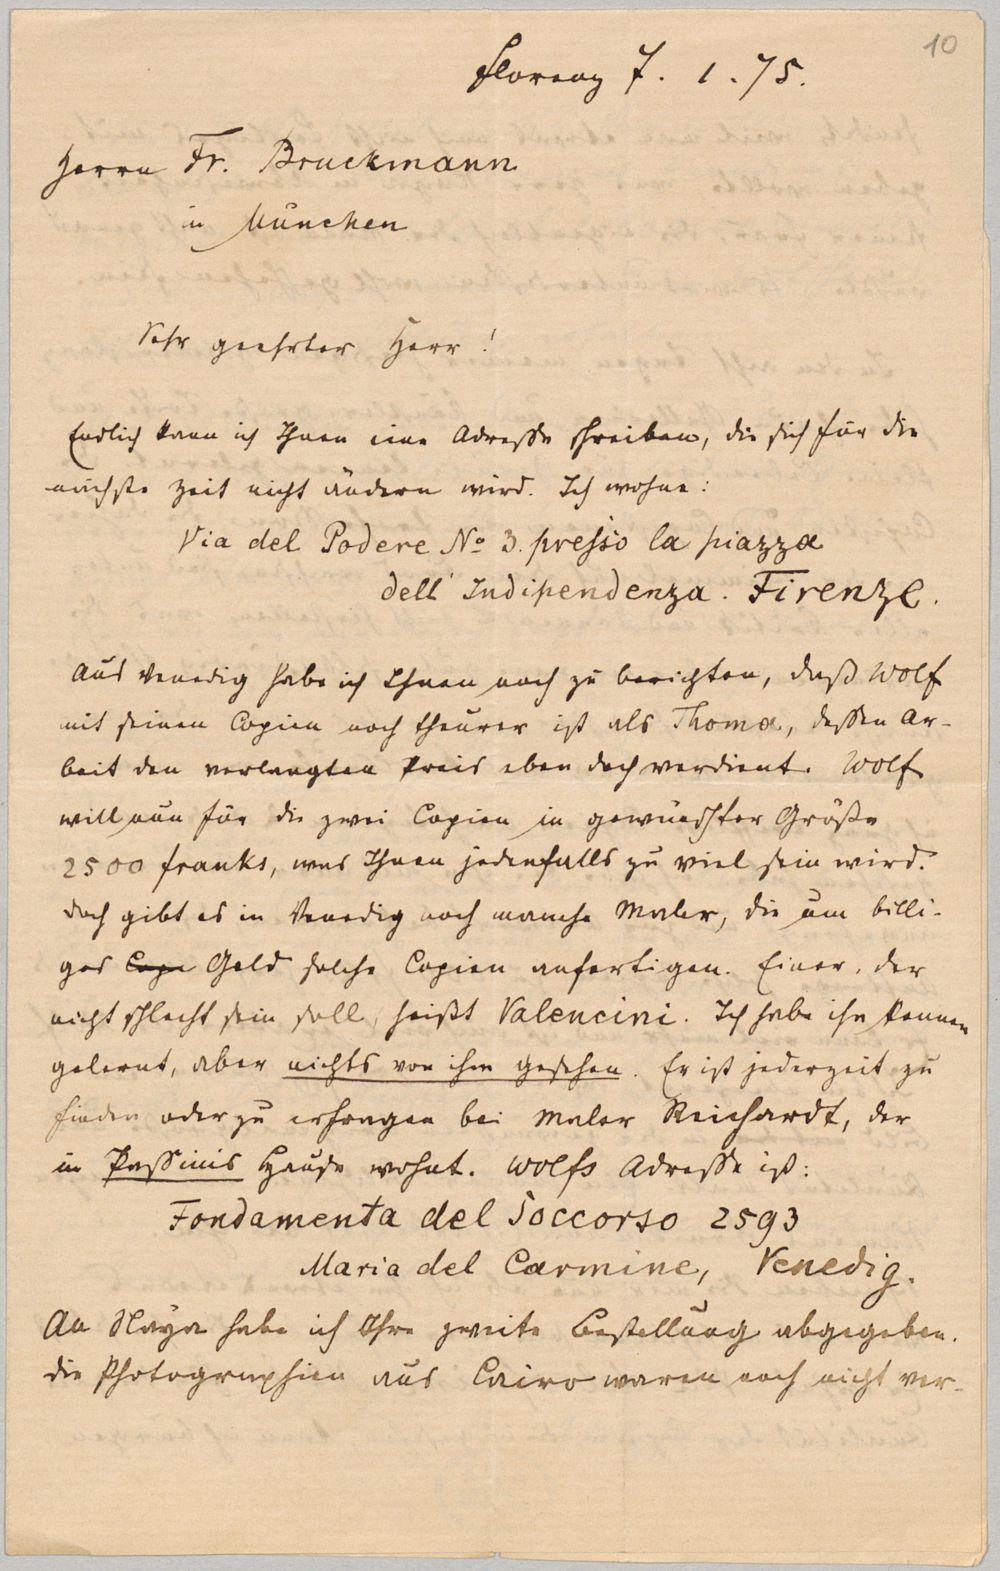 10
Florenz 7. 1. 75.
Herrn Fr. Bruckmann
in München
Sehr geehrter Herr!
Endlich kann ich Ihnen eine Adresse schreiben, die sich für die
nächste Zeit nicht ändern wird. Ich wohne:
Via del Podere No 3. presso la piazza
dell' Indipendenza. Firenze.
Aus Venedig habe ich Ihnen noch zu berichten, daß Wolf
mit seinen Copien noch theurer ist als Thoma, dessen Ar-
beit den verlangten Preis eben doch verdient. Wolf
will nun für die zwei Copien in gewünschter Größe
2500 franks, was Ihnen jedenfalls zu viel sein wird.
Doch gibt es in Venedig noch manche Maler, die um billi-
ges Cope Geld solche Copien anfertigen. Einer, der
nicht schlecht sein soll, heißt Valencini. Ich habe ihn kennen
gelernt, aber nichts von ihm gesehen. Er ist jederzeit zu
finden oder zu erfragen bei Maler Reichardt, der
in Passinis Hause wohnt. Wolfs Adresse ist:
Fondamenta del Soccorso 2593
Maria del Carmine, Venedig.
An Naya habe ich Ihre zweite Bestellung abgegeben.
Die Photographien aus Cairo waren noch nicht ver-